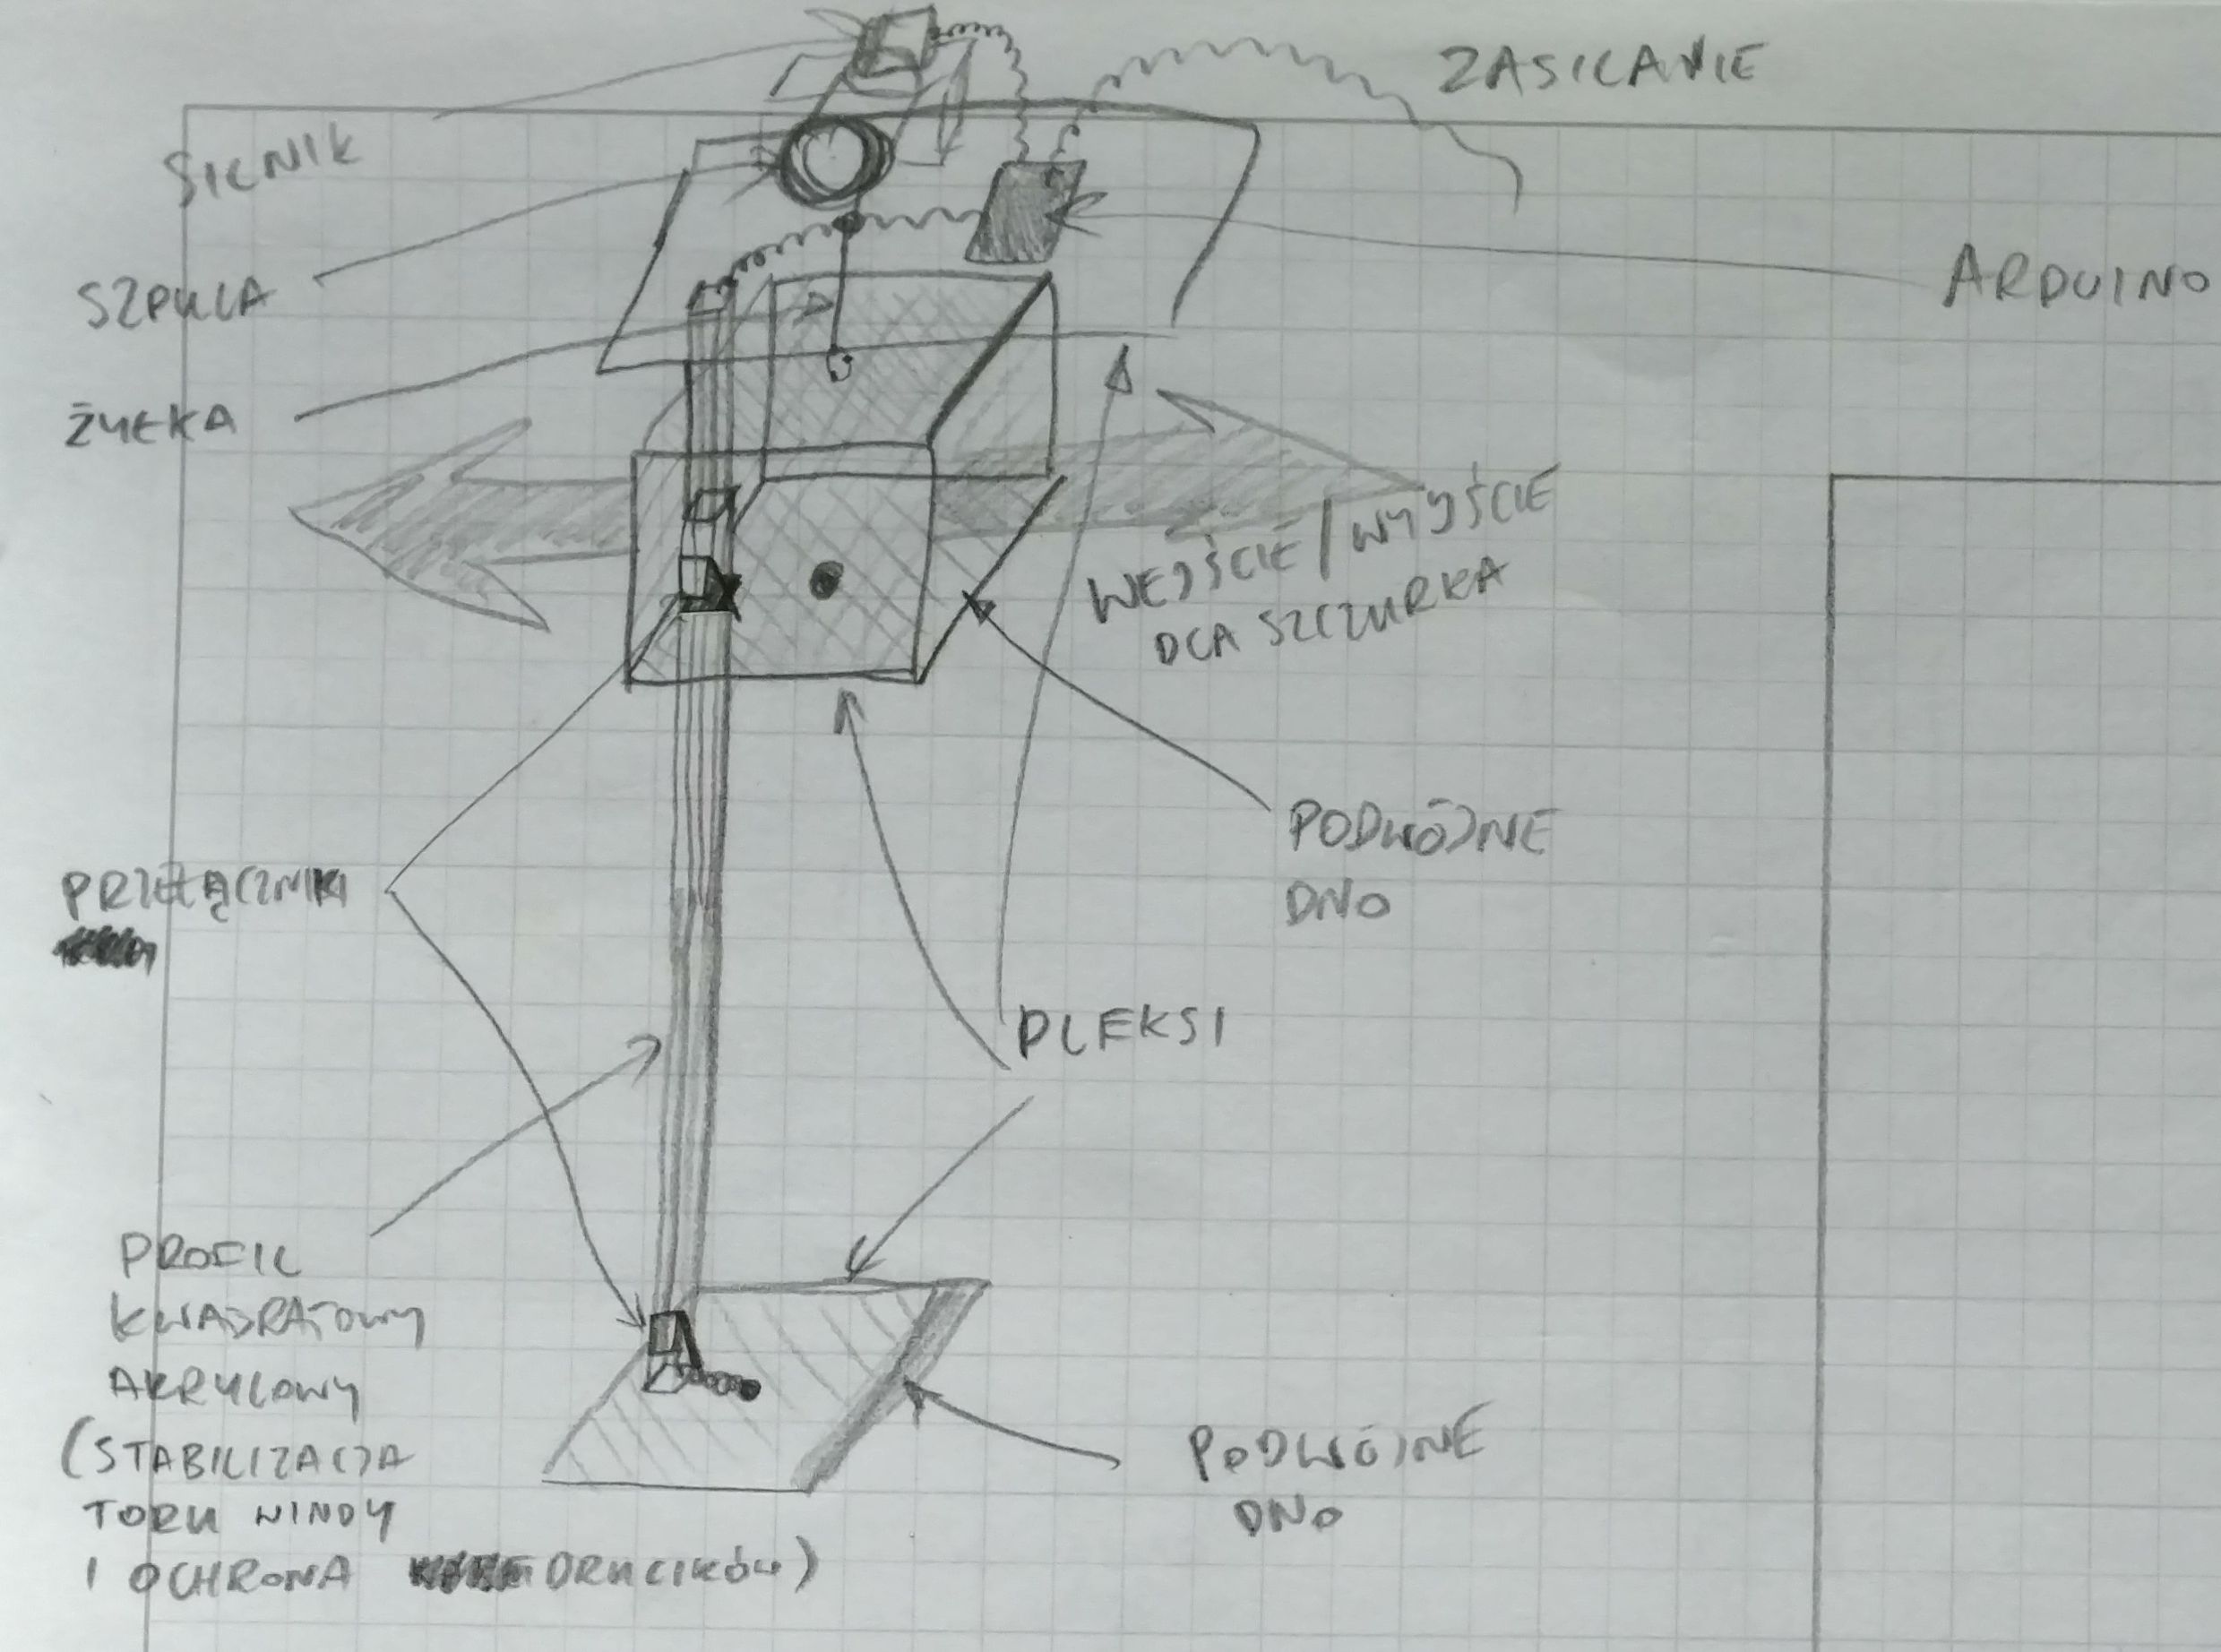 ZASILANIE
SILNIK
ARDUINO
SZPULA
ŻYŁKA
WEJŚCIE/WYJŚCIE
DLA SZCZURKA
PODWÓJNE
DNO
PRZEŁĄCZNIKI
PLEKSI
PROFIL
KWADRATOWY
AKRYLOWY
(STABILIZACJA
TORU WINDY
I OCHRONA DRUCIKÓW)
PODWÓJNE
DNO